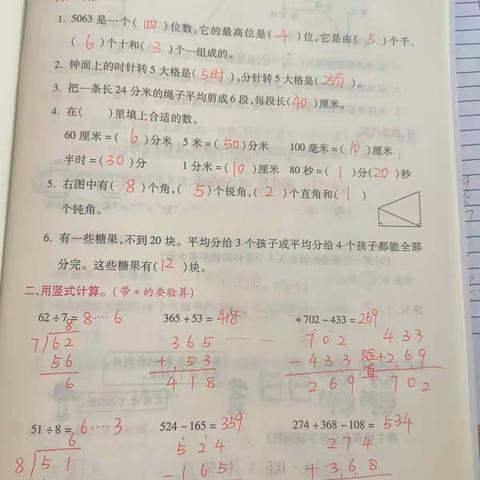 1. 5063 是一个( 四 )位数,它的最高位是( 4 )位,它是由( 5 )个千、
( 6 )个十和( 3 )个一组成的。
2. 钟面上的时针转 5 大格是( 5时 ),分针转 5 大格是( 25分 )。
3. 把一条长 24 分米的绳子平均剪成 6 段,每段长( 40 )厘米。
4. 在(  )里填上合适的数。
60 厘米 =( 6 )分米 5 米 =( 50 )分米 100 毫米 =( 10 )厘米
半时 =( 30 )分 1 分米 =( 10 )厘米 80 秒 =( 1 )分( 20 )秒
5. 右图中有( 8 )个角,( 5 )个锐角,( 2 )个直角和( 1 )
个钝角。
6. 有一些糖果,不到 20 块。平均分给 3 个孩子或平均分给 4 个孩子都能全部
分完。这些糖果有( 12 )块。
二、用竖式计算。(带 * 的要验算)
62 ÷ 7 = 8……6 365 + 53 = 418 * 702 - 433 = 269
8
7 6 2 3 6 5 7 0 2 4 3 3
5 6 + 5 3 - 4 3 3 验算 + 2 6 9
6 4 1 8 2 6 9 7 0 2
51 ÷ 8 = 6……3 524 - 165 = 359 274 + 368 - 108 = 534
6 5 2 4 2 7 4
8 5 1 - 1 6 5 + 3 6 8